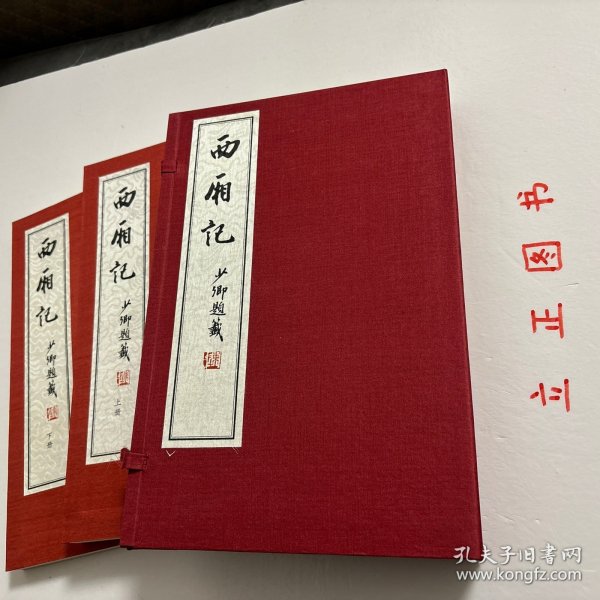 西厢记
少卿题籤
下册
西厢记
少卿题籤
上册
西厢记
少卿题籤
立正图书
孔夫子旧书网
www.kongfz.com